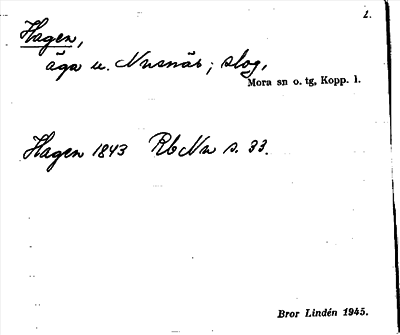 1.
Hagen,
äga u. Nusnäs; skog,
Mora sn o. tg, Kopp. l.
Hagen 1843 Rb Nu s. 33.
Bror Lindén 1945.